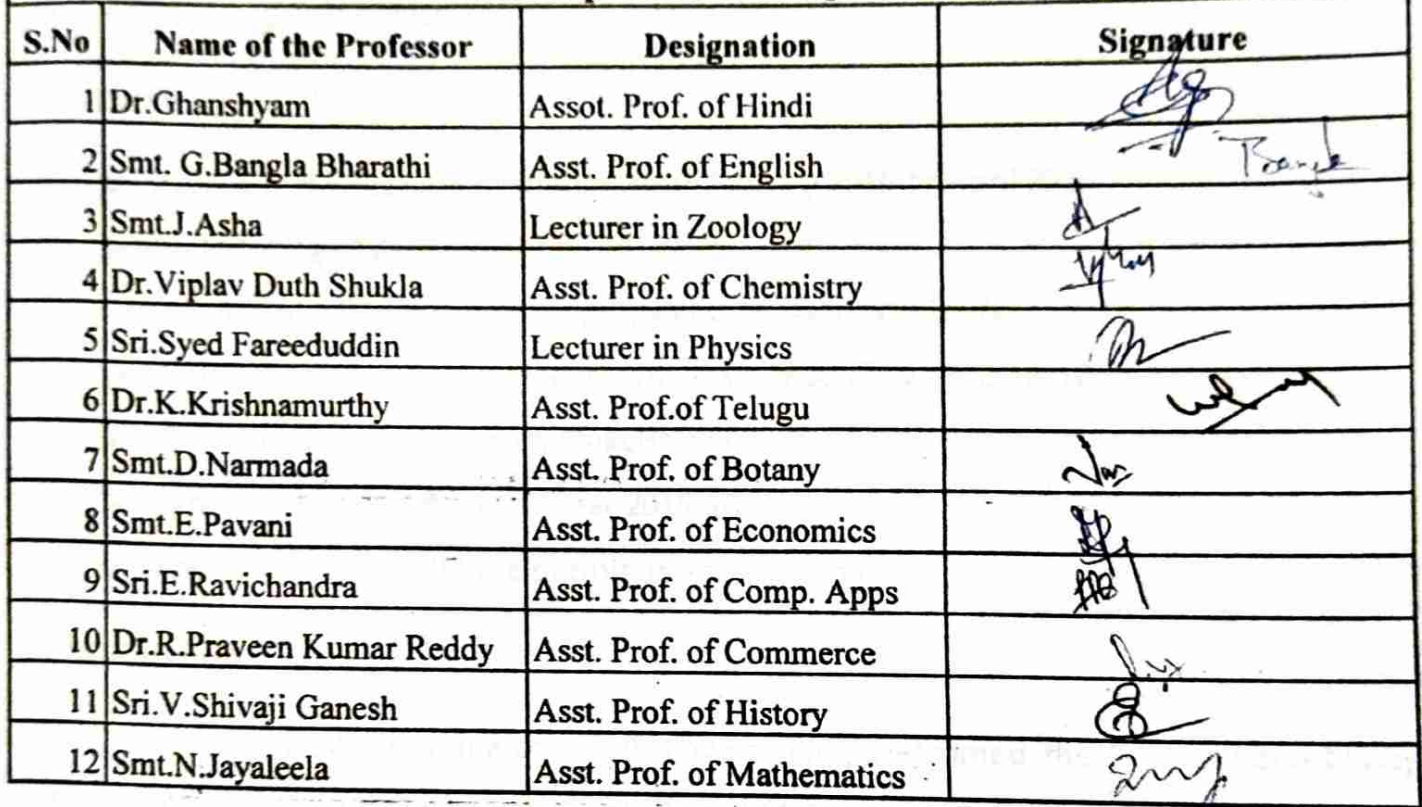 S.No Name of the Professor Designation Signature
1 Dr.Ghanshyam Assot. Prof. of Hindi
2 Smt. G.Bangla Bharathi Asst. Prof. of English
3 Smt.J.Asha Lecturer in Zoology
4 Dr.Viplav Duth Shukla Asst. Prof. of Chemistry
5 Sri.Syed Fareeduddin Lecturer in Physics
6 Dr.K.Krishnamurthy Asst. Prof.of Telugu
7 Smt.D.Narmada Asst. Prof. of Botany
8 Smt.E.Pavani Asst. Prof. of Economics
9 Sri.E.Ravichandra Asst. Prof. of Comp. Apps
10 Dr.R.Praveen Kumar Reddy Asst. Prof. of Commerce
11 Sri.V.Shivaji Ganesh Asst. Prof. of History
12 Smt.N.Jayaleela Asst. Prof. of Mathematics